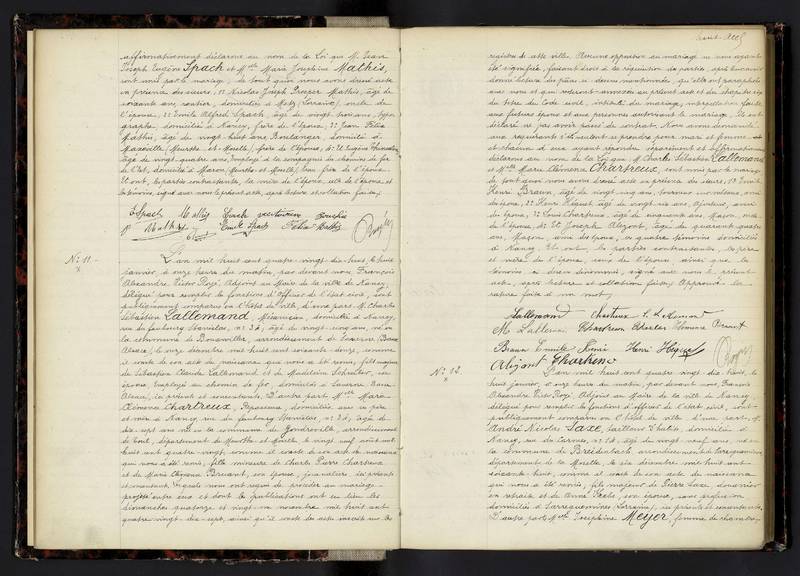 affirmativement déclarons au nom de la Loi que M. Jean
Joseph Eugène Spach et Mlle Marie Joséphine Mathis,
sont unis par le mariage, de tout quoi nous avons dressé acte
en présence des sieurs, 1° Nicolas Joseph Prosper Mathis, âgé de
soixante ans, rentier, domicilié à Metz (Lorraine), oncle de
l'épouse, 2° Emile Alfred Spach, âgé de vingt trois ans, typo-
graphe, domicilié à Nancy, frère de l'époux, 3° Jean Félix
Mathis, âgé de vingt huit ans, Boulanger, domicilié à
Maxéville (Meurthe et Moselle), frère de l'épouse, 4° et Eugène
âgé de vingt-quatre ans, Employé à la compagnie du chemin de fer
de l'Est, domicilié à (Meurthe et Moselle), beau frère de l'épouse.
Et ont, les parties contractantes, la mère de l'époux, celle de l'épouse, et
les témoins, signé avec nous le présent acte, après lecture et collation faites.
E Spach Mathis Spach
P Mathis Emile Spach Félix Mathis
N° 11
L'an mil huit cent quatre-vingt-dix-huit, le huit
janvier, à onze heures du matin, par devant nous, François
Alexandre Victor Adjoint au Maire de la ville de Nancy,
délégué pour remplir les fonctions d'Officier de l'état civil, sont
publiquement comparus en l'hôtel de ville, d'une part, M. Charles
Sébastien Lallemand, Mécanicien, domicilié à Nancy,
rue du faubourg Stanislas, n° 32, âgé de vingt-cinq ans, né en
la commune de arrondissement de Saverne (Basse
Alsace), le onze décembre mil huit cent soixante douze, comme
il conste de son acte de naissance qui nous a été remis, fils majeur
de Sébastien Claude Lallemand et de Madeleine son
épouse, Employé au chemin de fer, domiciliés à Saverne (Basse
Alsace), ici présents et consentants. D'autre part Mlle Marie
Clémence Chartreux, Repasseuse, domiciliée avec ses père
et mère à Nancy, rue du faubourg Stanislas, n° 32, âgée de
dix-sept ans, née en la commune de Gondreville, arrondissement
de Toul, département de Meurthe et Moselle, le vingt neuf août mil
huit cent quatre-vingt, comme il conste de son acte de naissance
qui nous a été remis, fille mineure de Charles Pierre Chartreux
et de Marie Clémence Bernard, son épouse, journaliers, ici présents
et consentants. Lesquels nous ont requis de procéder au mariage
projeté entre eux et dont les publications ont eu lieu les
dimanches quatorze et vingt-un novembre mil huit cent
quatre-vingt-dix-sept, ainsi qu'il conste des actes inscrits sur les
registres de cette ville. Aucune opposition au mariage ne nous ayant
été signifiée, faisant droit à la réquisition des parties, après leur avoir
donné lecture des pièces ci-dessus mentionnées, qu'elles ont paraphées
avec nous et qui resteront annexées au présent acte et du chapitre six
du titre du Code civil, intitulé du mariage, interpellation faite
aux futurs époux et aux personnes autorisant le mariage, ils ont
déclaré ne pas avoir passé de contrat. Nous avons demandé
aux requérants s'ils veulent se prendre pour mari et femme et
et chacun d'eux ayant répondu séparément et affirmativement
déclarons au nom de la Loi que M. Charles Sébastien Lallemand
et Mlle Marie Clémence Chartreux, sont unis par le mariage
de tout quoi nous avons dressé acte en présence des sieurs, 1° Emile
Henri Braun, âgé de vingt-cinq ans, tourneur en métaux, ami
de l'époux, 2° Henri Hiquet, âgé de vingt-six ans, Ajusteur, ami
de l'époux, 3° Louis Chartreux, âgé de cinquante ans, Maçon, oncle
de l'épouse, 4° et Joseph Alizont, âgé de quarante quatre
ans, Maçon, ami des époux, ces quatre témoins domiciliés
à Nancy. Et ont, les parties contractantes, les père
et mère de l'époux, ceux de l'épouse ainsi que les
témoins ci-dessus dénommés, signé avec nous le présent
acte, après lecture et collation faites. Approuvé la
rature faite d'un mot.
Lallemand Chartreux
M Lallemand Chartreux Charles Clémence
Braun Emile Henri Henri Hiquet
Alizont Chartreux
N° 12
L'an mil huit cent quatre-vingt-dix-huit, le
huit janvier, à onze heures du matin, par devant nous, François
Alexandre Victor Adjoint au Maire de la ville de Nancy,
délégué pour remplir les fonctions d'Officier de l'état civil, sont
publiquement comparus en l'hôtel de ville, d'une part, M.
André Nicolas Saxe, tailleur d'habits, domicilié à
Nancy, rue des Carmes, n° 32, âgé de vingt-neuf ans, né en
la commune de Breidenbach, arrondissement de Sarreguemines,
département de la Moselle, le six décembre mil huit cent
soixante-huit, comme il conste de son acte de naissance
qui nous a été remis, fils majeur de Pierre Saxe, douanier
en retraite et de Anne son épouse, sans profession
domiciliés à Sarreguemines (Lorraine), ici présents et consentants.
D'autre part, Mlle Joséphine Meyer, femme de chambre,